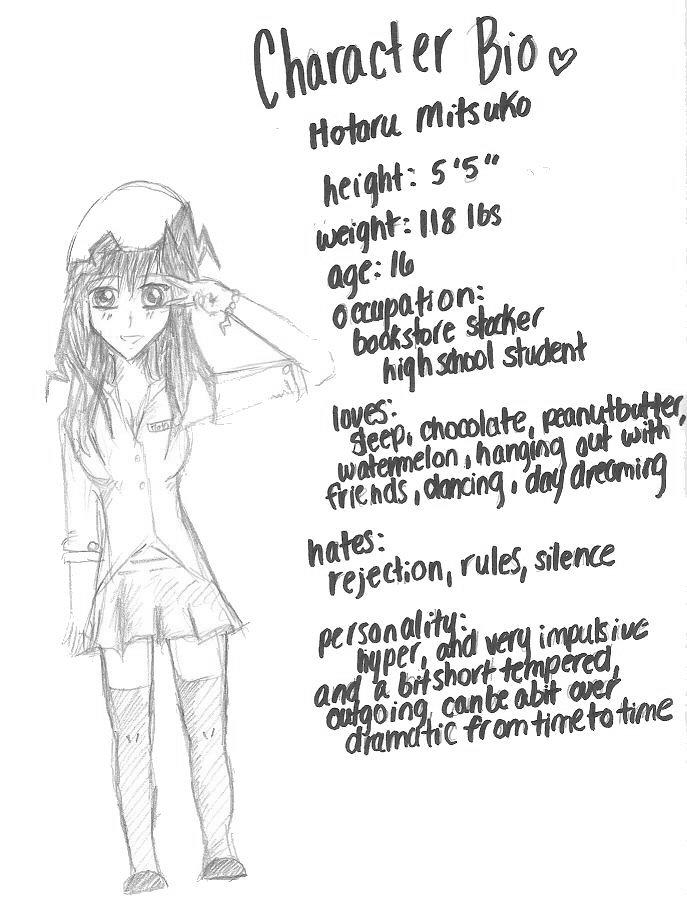 Character Bio ♡
Hotaru Mitsuko
height: 5'5"
weight: 118 lbs
age: 16
occupation:
bookstore stocker
high school student
loves:
sleep, chocolate, peanutbutter,
watermelon, hanging out with
friends, dancing, day dreaming
hates:
rejection, rules, silence
personality:
hyper, and very impulsive
and a bit short tempered,
outgoing, can be a bit over
dramatic from time to time